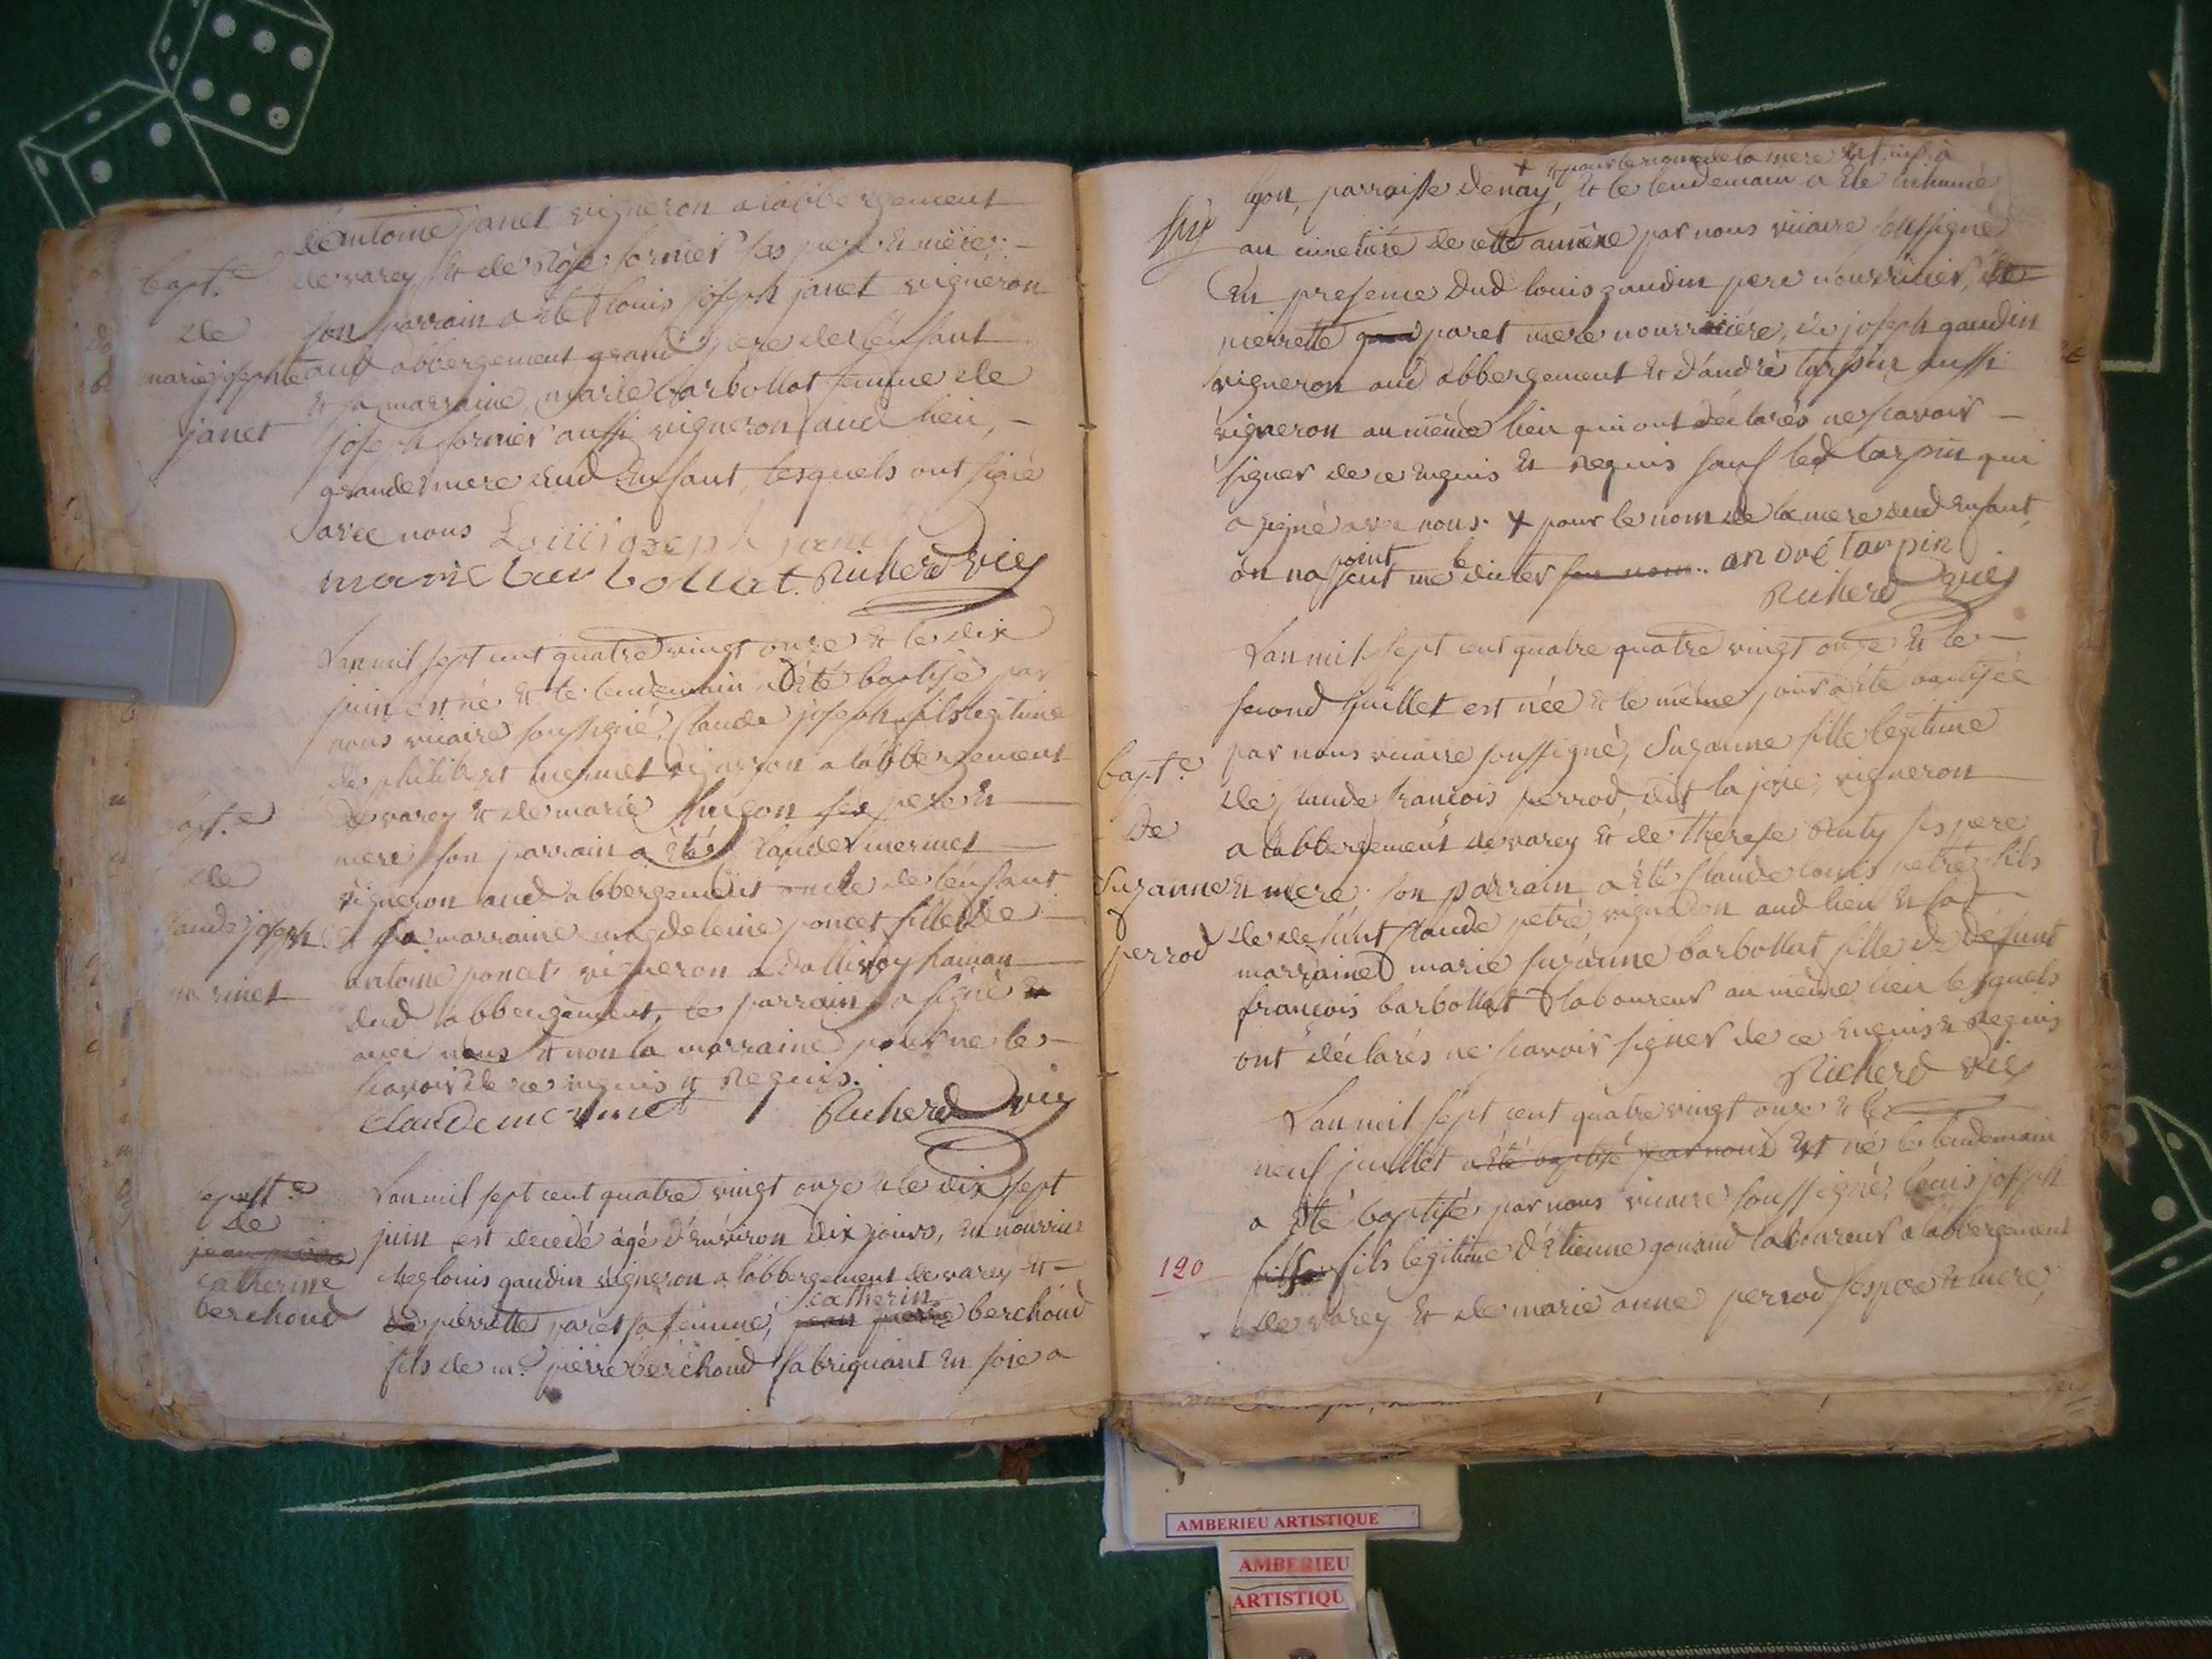 d'antoine janet vigneron a labbergement
de varey et de Rose fornier ses pere et mere;
son parrain a été louis joseph janet vigneron
aud abbergement grand pere de l'enfant
et sa marraine, marie barbollat femme de
joseph fornier aussi vigneron aud lieu,
grande mere dud enfant, lesquels ont signé
avec nous Louis joseph janet
marie barbollat. Richerd vic
bapt.e
de
marie josephte
janet
Lan mil sept cent quatre vingt onze et le dix
juin est né et le lendemain a été baptisé par
nous vicaire soussigné, Claude joseph fils legitime
de philibert mermet vigneron a labbergement
de varey et de marie ses pere et
mere son parrain a été Claude mermet
vigneron aud abbergement oncle de l'enfant
et sa marraine magdeleine poncet fille de
antoine poncet vigneron a dallivoy hamau
dud abbergement, le parrain a signé
avec nous et non la marraine pour ne le
scavoir de ce enquis et Requis.
Claude mermet Richerd vic
bapt.e
de
Claude joseph
mermet
Lan mil sept cent quatre vingt onze et le dix sept
juin est decedé agé d'environ dix jours, en nourrice
chez louis gaudin vigneron a labbergement de varey et
de pierrette paret sa femme, jean pierre catherin berchoud
fils de m.r pierre berchoud fabriquant en soie a
sepult.e
de
jean pierre
catherine
berchoud
+ et pour le nom de la mere
lyon, parroisse denay, et le lendemain a été inhumé
au cimetiere de cette annexe par nous vicaire soussigné
en presence dud louis gaudin pere nourricier, de
pierrette paret mere nourriciére, de joseph gaudin
vigneron aud abbergement et d'andré tarpin aussi
vigneron au même lieu qui ont déclarés ne scavoir
signer de ce enquis et Requis sauf led tarpin qui
a signé avec nous. + pour le nom de la mere dud enfant,
on na point sut me le dicter son nom. andré tarpin
Richerd vic
Lan mil sept cent quatre quatre vingt onze et le
second juillet est née et le même jour a été baptisée
par nous vicaire soussigné, Suzanne fille legitime
de claude françois perrod dit la joie, vigneron
a labbergement de varey et de therese ses pere
et mere, son parrain a été Claude louis petré fils
de defunt claude petré, vigneron aud lieu et sa
marraine marie suzanne barbollat fille de défunt
françois barbollat laboureur au même lieu lesquels
ont déclarés ne scavoir signer de ce enquis et Requis
Richerd vic
bapt.e
de
Suzanne
perrod
Lan mil sept cent quatre vingt onze et le
neuf juillet a été baptisé par nous est né le lendemain
a été baptisé par nous vicaire soussigné, louis joseph
fils legitime d'Etienne gonand laboureur a labbergement
de varey et de marie anne perrod ses pere et mere,
120
AMBERIEU ARTISTIQUE
AMBERIEU
ARTISTIQU